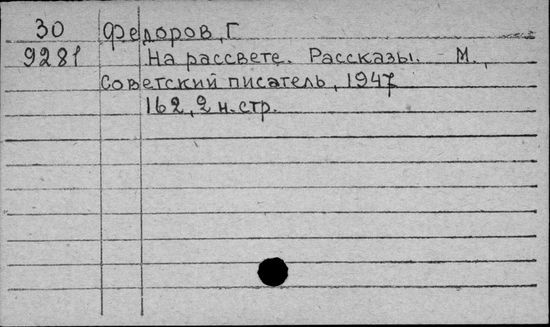 30 Федоров, Г
9281 На рассвете. Рассказы. М.,
Советский писатель, 1947
162, 2 н. стр.